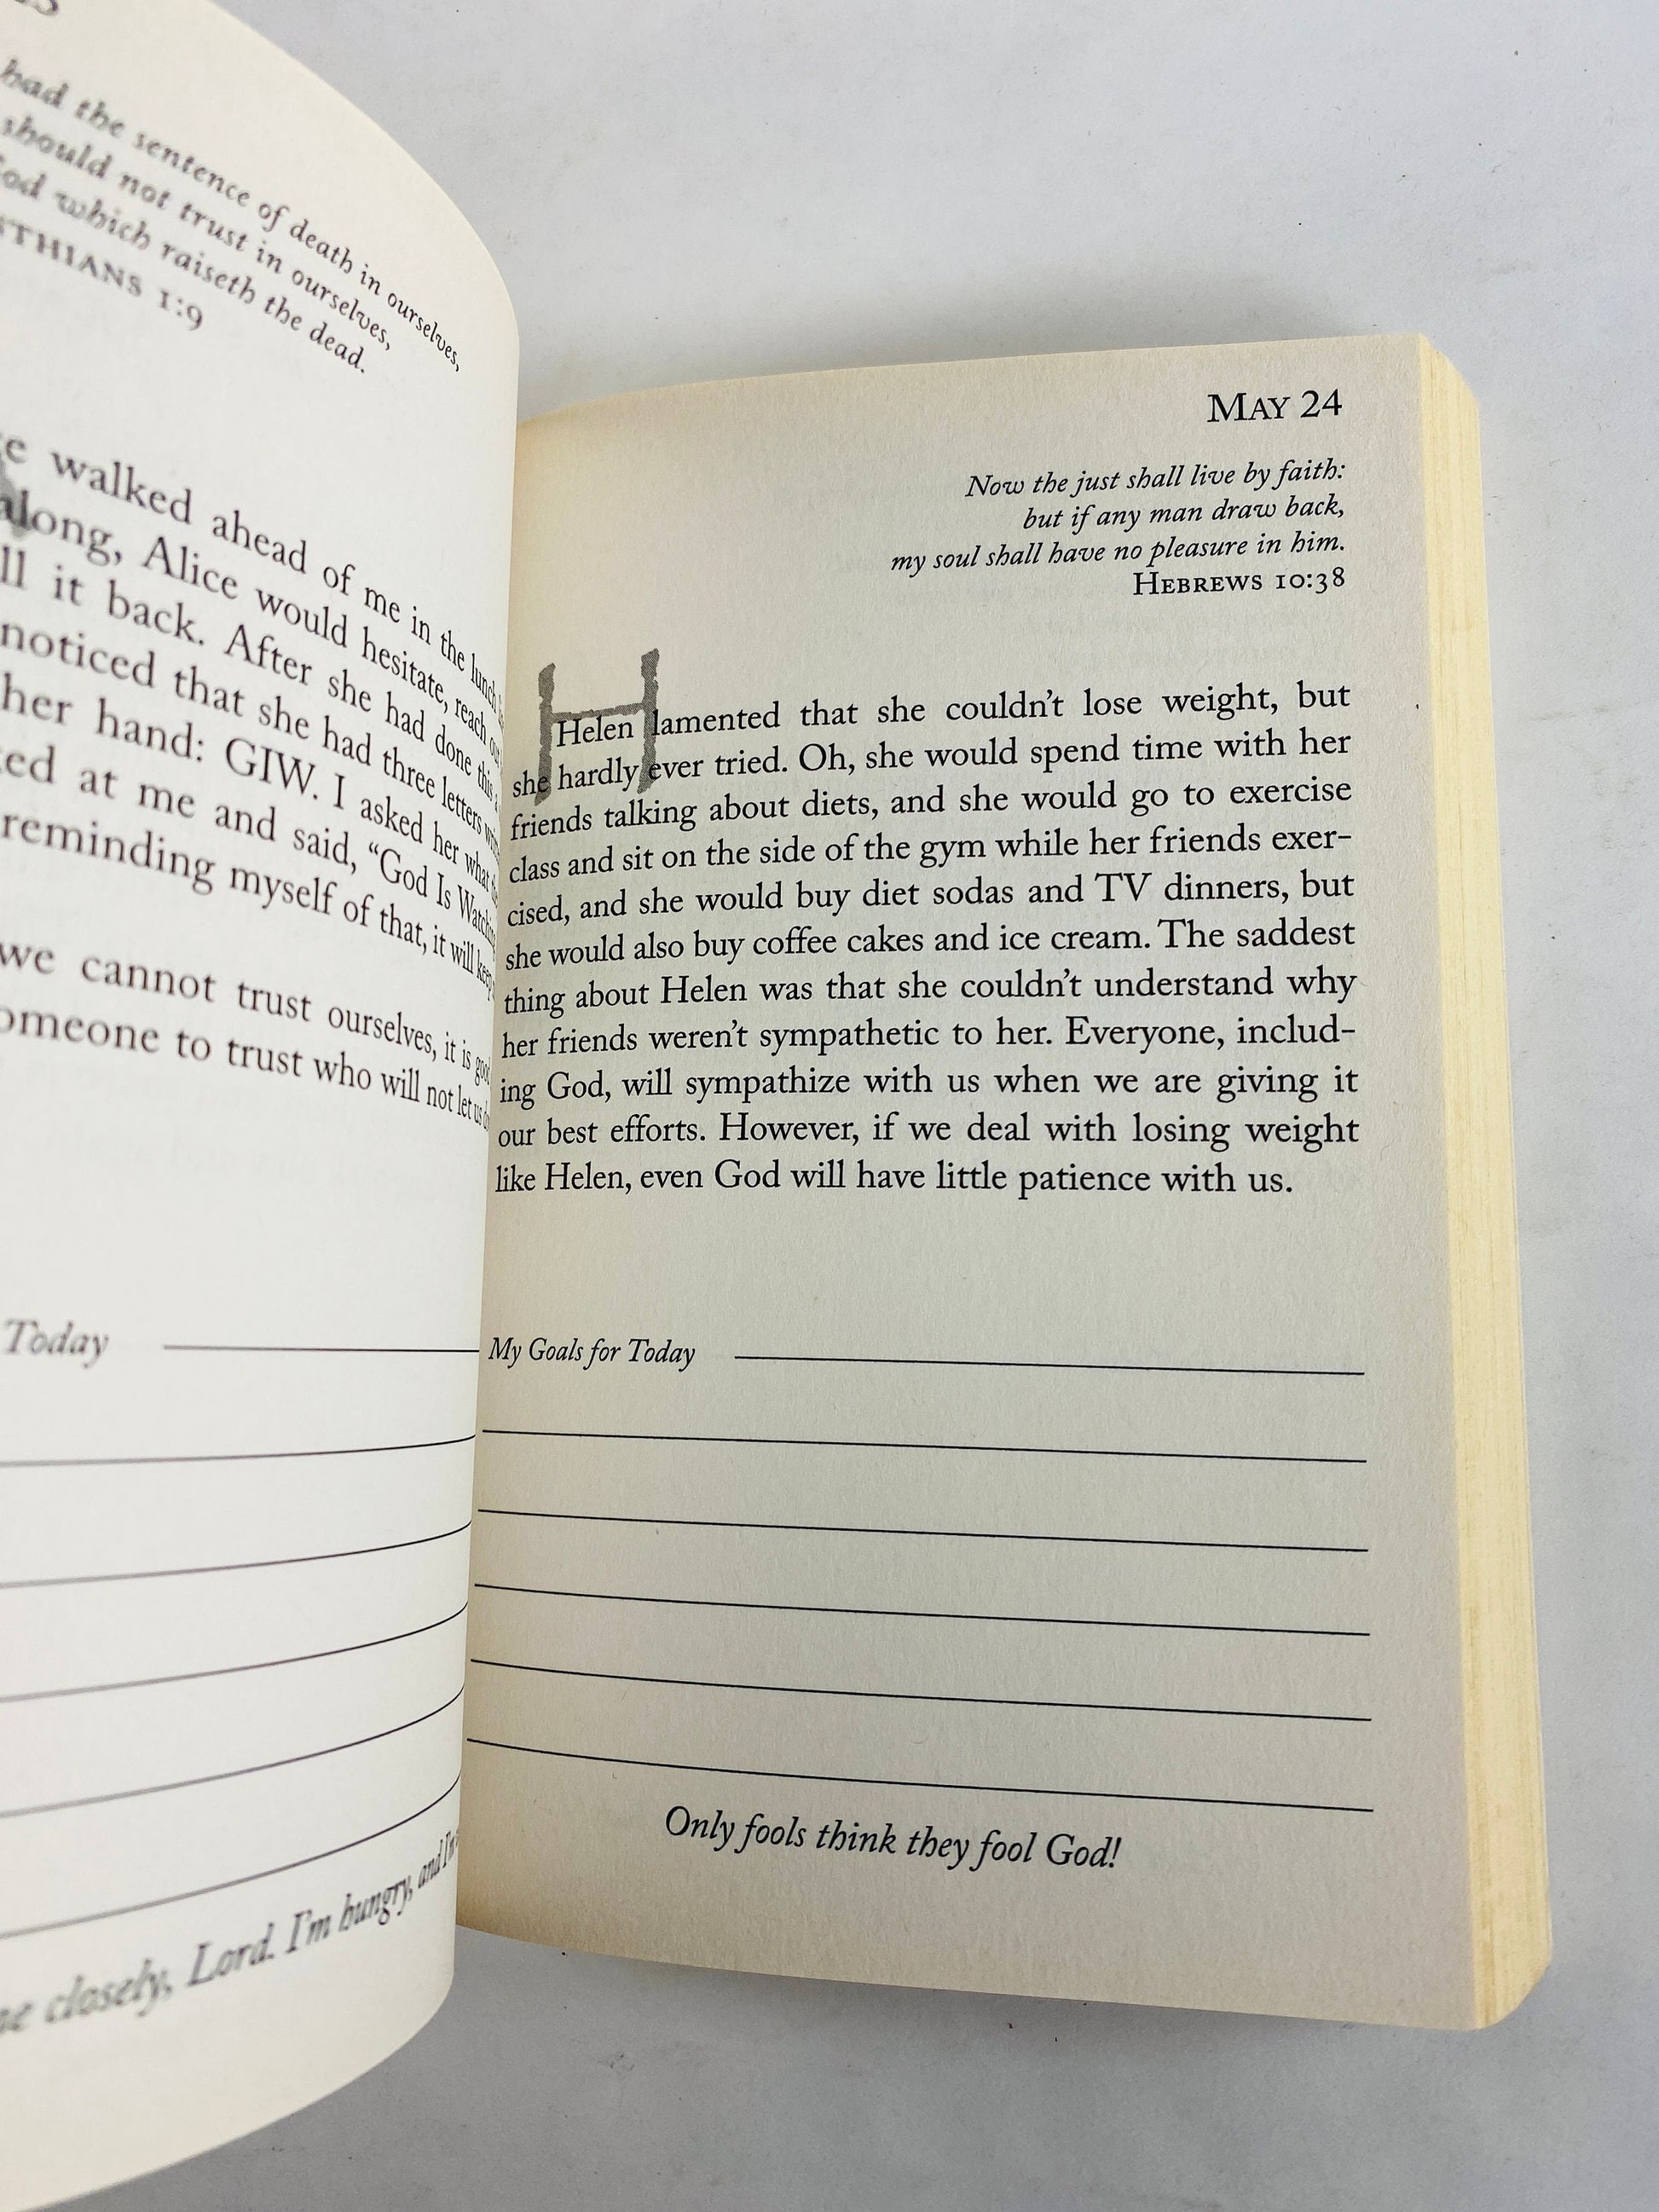 had the sentence of death in ourselves,
should not trust in ourselves,
which raiseth the dead.
1:9
walked ahead of me in the lunch
along, Alice would hesitate, reach
it back. After she had done this
noticed that she had three letters
her hand: GIW. I asked her what
at me and said, “God Is Watching
reminding myself of that, it will keep
we cannot trust ourselves, it is good
to trust who will not let us
Today
closely, Lord. I'm hungry, and I'm
MAY 24
Now the just shall live by faith:
but if any man draw back,
my soul shall have no pleasure in him.
HEBREWS 10:38
H
Helen lamented that she couldn't lose weight, but
she hardly ever tried. Oh, she would spend time with her
friends talking about diets, and she would go to exercise
class and sit on the side of the gym while her friends exer-
cised, and she would buy diet sodas and TV dinners, but
she would also buy coffee cakes and ice cream. The saddest
thing about Helen was that she couldn't understand why
her friends weren't sympathetic to her. Everyone, includ-
ing God, will sympathize with us when we are giving it
our best efforts. However, if we deal with losing weight
like Helen, even God will have little patience with us.
My Goals for Today
Only fools think they fool God!